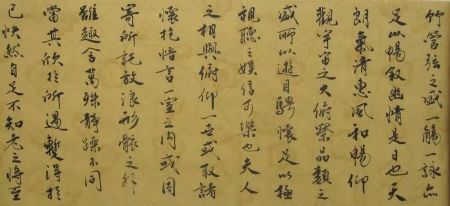 竹管弦之盛一觴一詠亦
足以暢叙幽情是日也天
朗氣清惠風和暢仰
觀宇宙之大俯察品類之
盛所以遊目騁懷足以極
視聽之娱信可樂也夫人
之相與俯仰一世或取諸
懷抱悟言一室之内或因
寄所託放浪形骸之外
雖趣舍萬殊靜躁不同
當其欣於所遇暫得於
己快然自足不知老之將至